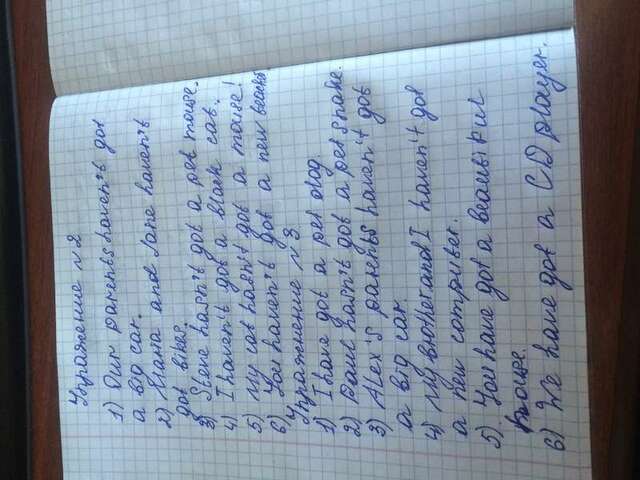 Упражнение №2
1) Our parents haven't got
a big car.
2) Maria and Jane haven't
got bikes
3) Steve hasn't got a pet mouse.
4) I haven't got a black cat.
5) My cat hasn't got a mouse!
6) You haven't got a new
Упражнение №3.
1) I have got a pet dog
2) Paul hasn't got a pet snake.
3) Alex's parents haven't got
a big car
4) My brother and I haven't got
a new computer.
5) You have got a beautiful
house.
6) We have got a CD player.